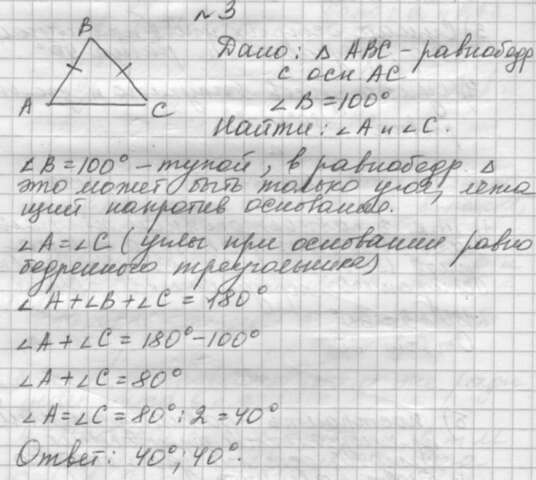 №3
B
A
C
Дано: △ ABC - равнобедр
с осн AC
∠B = 100°
Найти: ∠A и ∠C.
∠B = 100° - тупой, в равнобедр △
это может быть только угол, лежа
щий напротив основания.
∠A = ∠C (углы при основании равно
бедренного треугольника)
∠A + ∠B + ∠C = 180°
∠A + ∠C = 180° - 100°
∠A + ∠C = 80°
∠A = ∠C = 80° : 2 = 40°
Ответ: 40°; 40°.